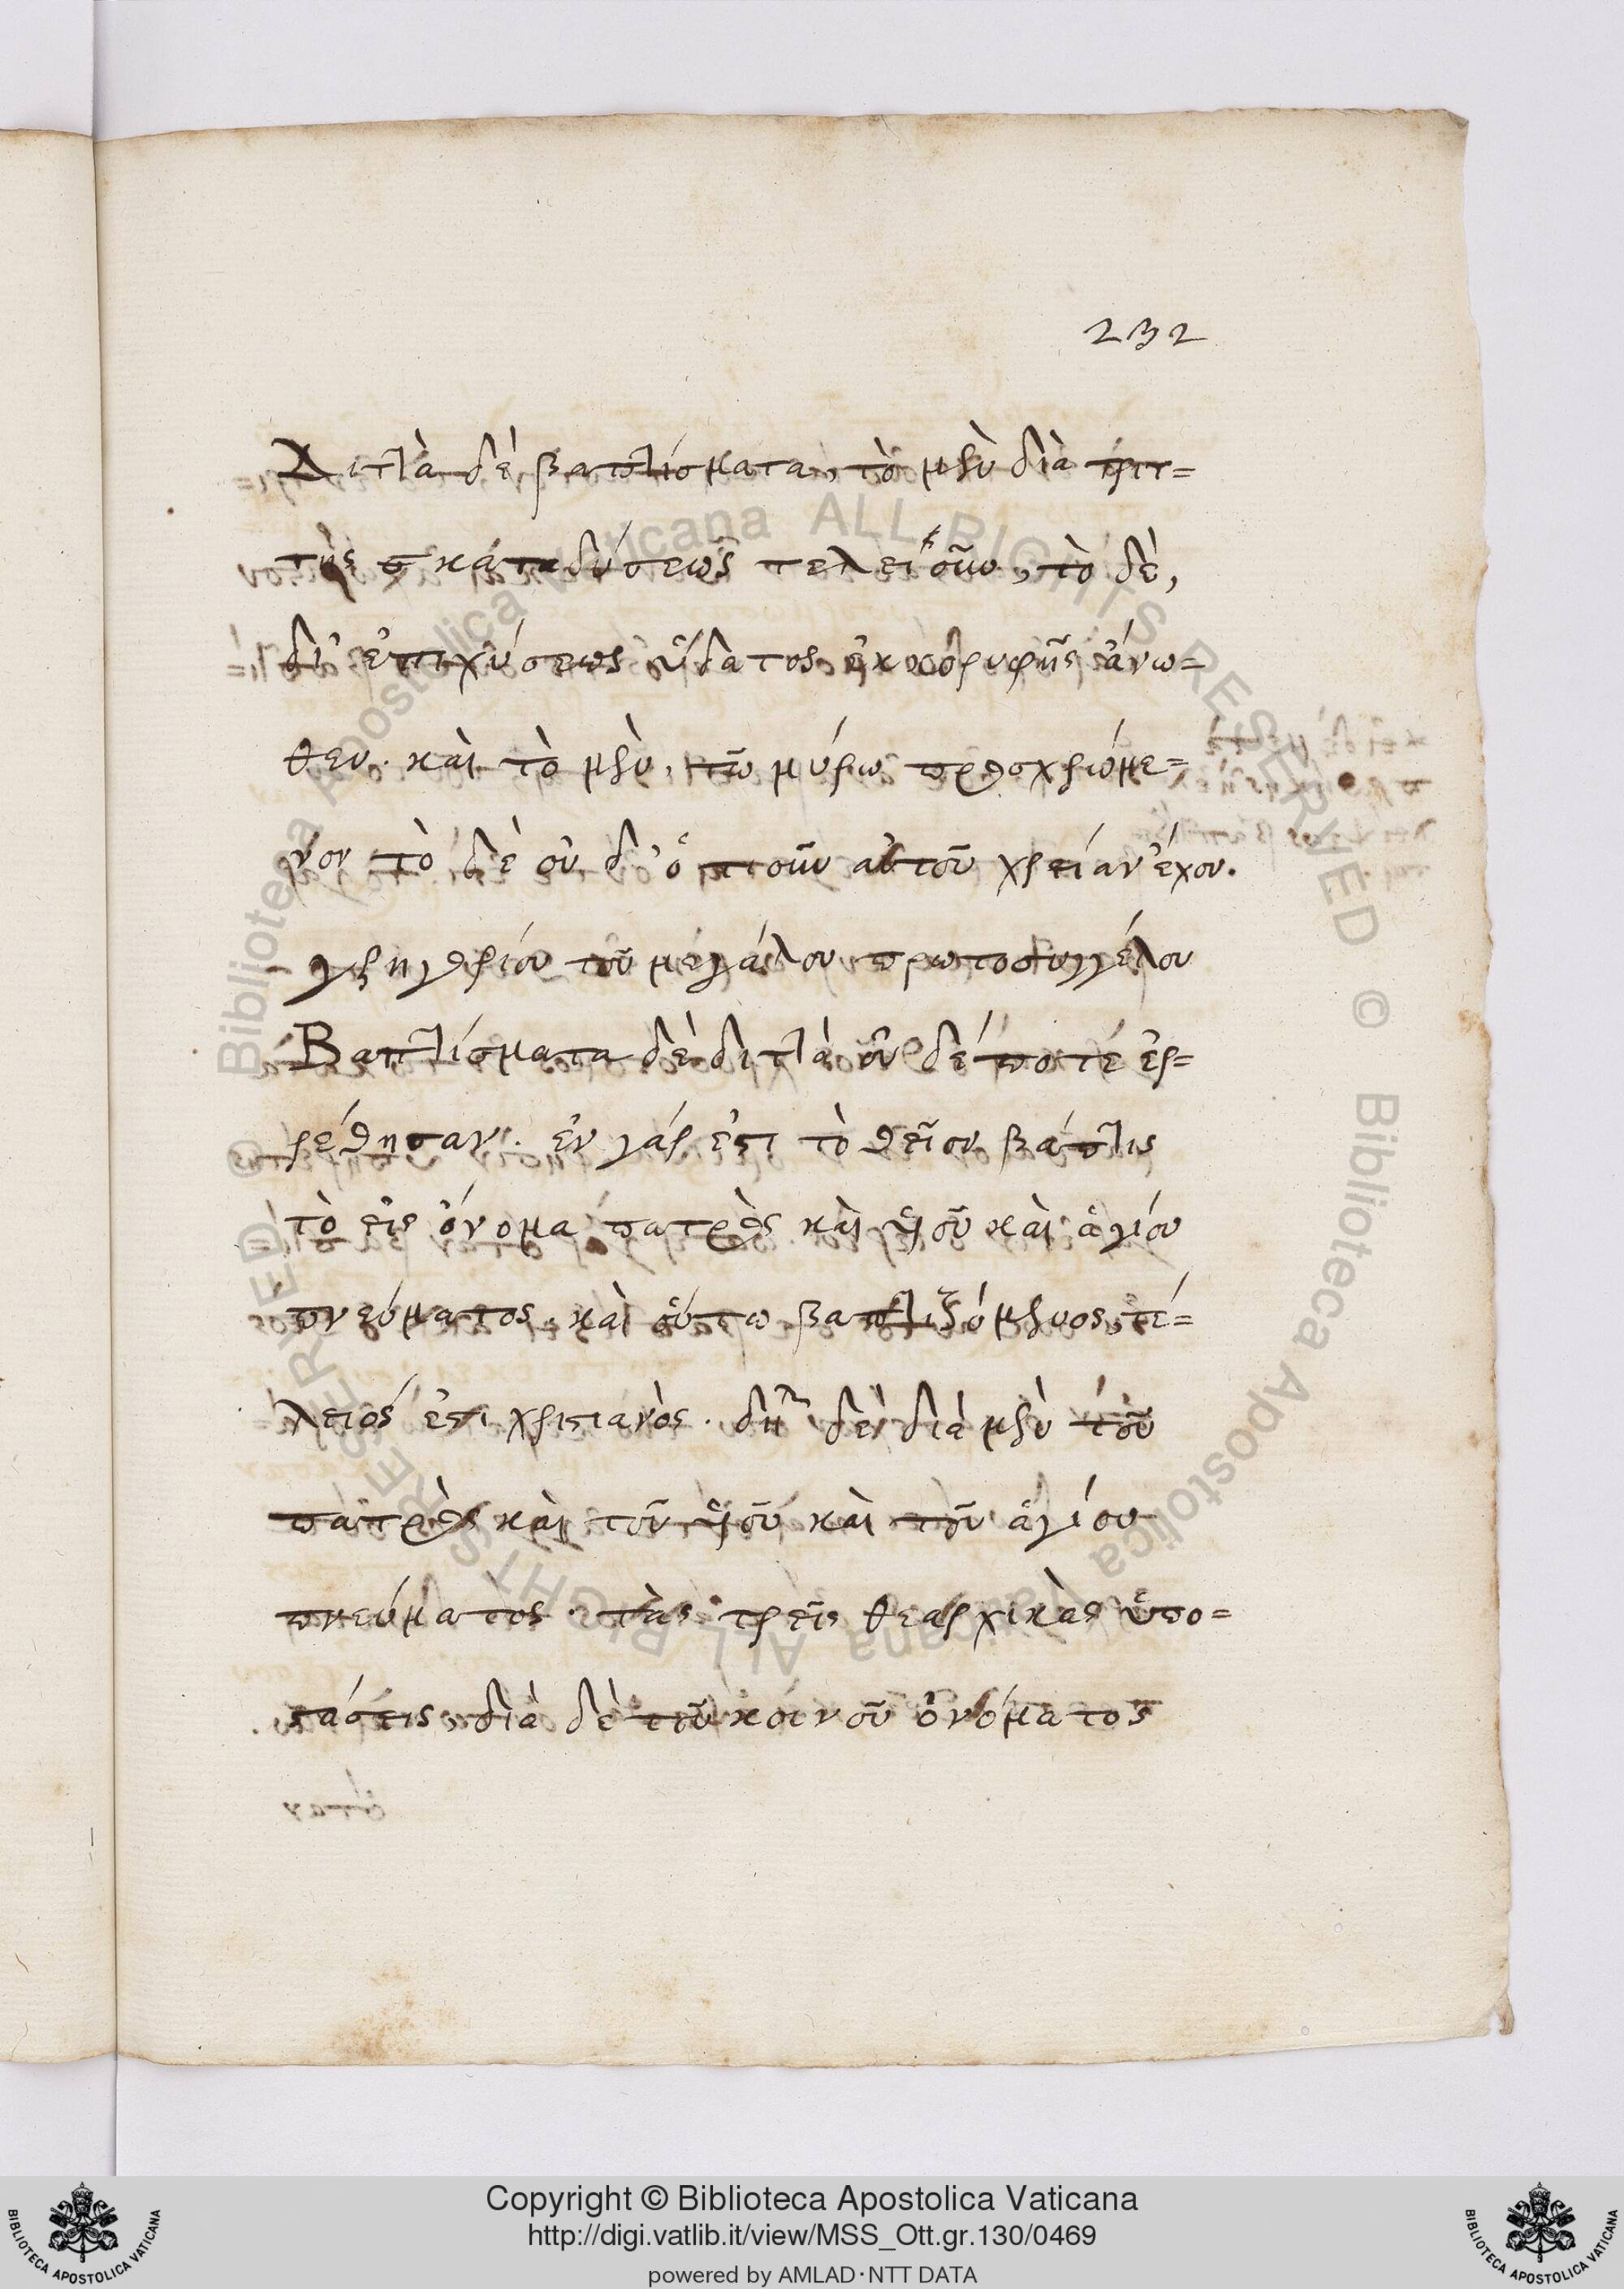 232
Διπλὰ δὲ βαπτίσματα, τὸ μὲν διὰ τριτ=
τῆς καταδύσεως τελειοῦν, τὸ δὲ,
δι' ἐπιχύσεως ὕδατος ἐκ κορυφῆς ἄνω=
θεν. καὶ τὸ μὲν, τῶ μύρω προσχριόμε=
νον τὸ δὲ οὐδ' ὁτιοῦν αὐτοῦ χρείαν ἔχον.
γρηγορίου τοῦ μεγάλου πρωτοσυγγέλου
Βαπτίσματα δὲ διπλὰ οὐδέποτε ἐρ=
ρέθησαν. ἐν γάρ ἐστι τὸ θεῖον βάπτις
τὸ εἰς ὄνομα πατρὸς καὶ υἱοῦ καὶ ἁγίου
πνεύματος. καὶ οὕτω βαπτιζόμενος, τέ=
λειός ἐστι χριστιανὸς. δη δὲ διὰ μὲν τοῦ
πατρὸς καὶ τοῦ υἱοῦ καὶ τοῦ ἁγίου
πνεύματος. τὰς τρεῖς θεαρχικὰς ὑπο=
στάσεις, διὰ δὲ τοῦ κοινοῦ ὀνόματος
Copyright © Biblioteca Apostolica Vaticana
http://digi.vatlib.it/view/MSS_Ott.gr.130/0469
powered by AMLAD·NTT DATA
BIBLIOTECA APOSTOLICA VATICANA
BIBLIOTECA APOSTOLICA VATICANA
© Biblioteca Apostolica Vaticana ALL RIGHTS RESERVED
© Biblioteca Apostolica Vaticana ALL RIGHTS RESERVED